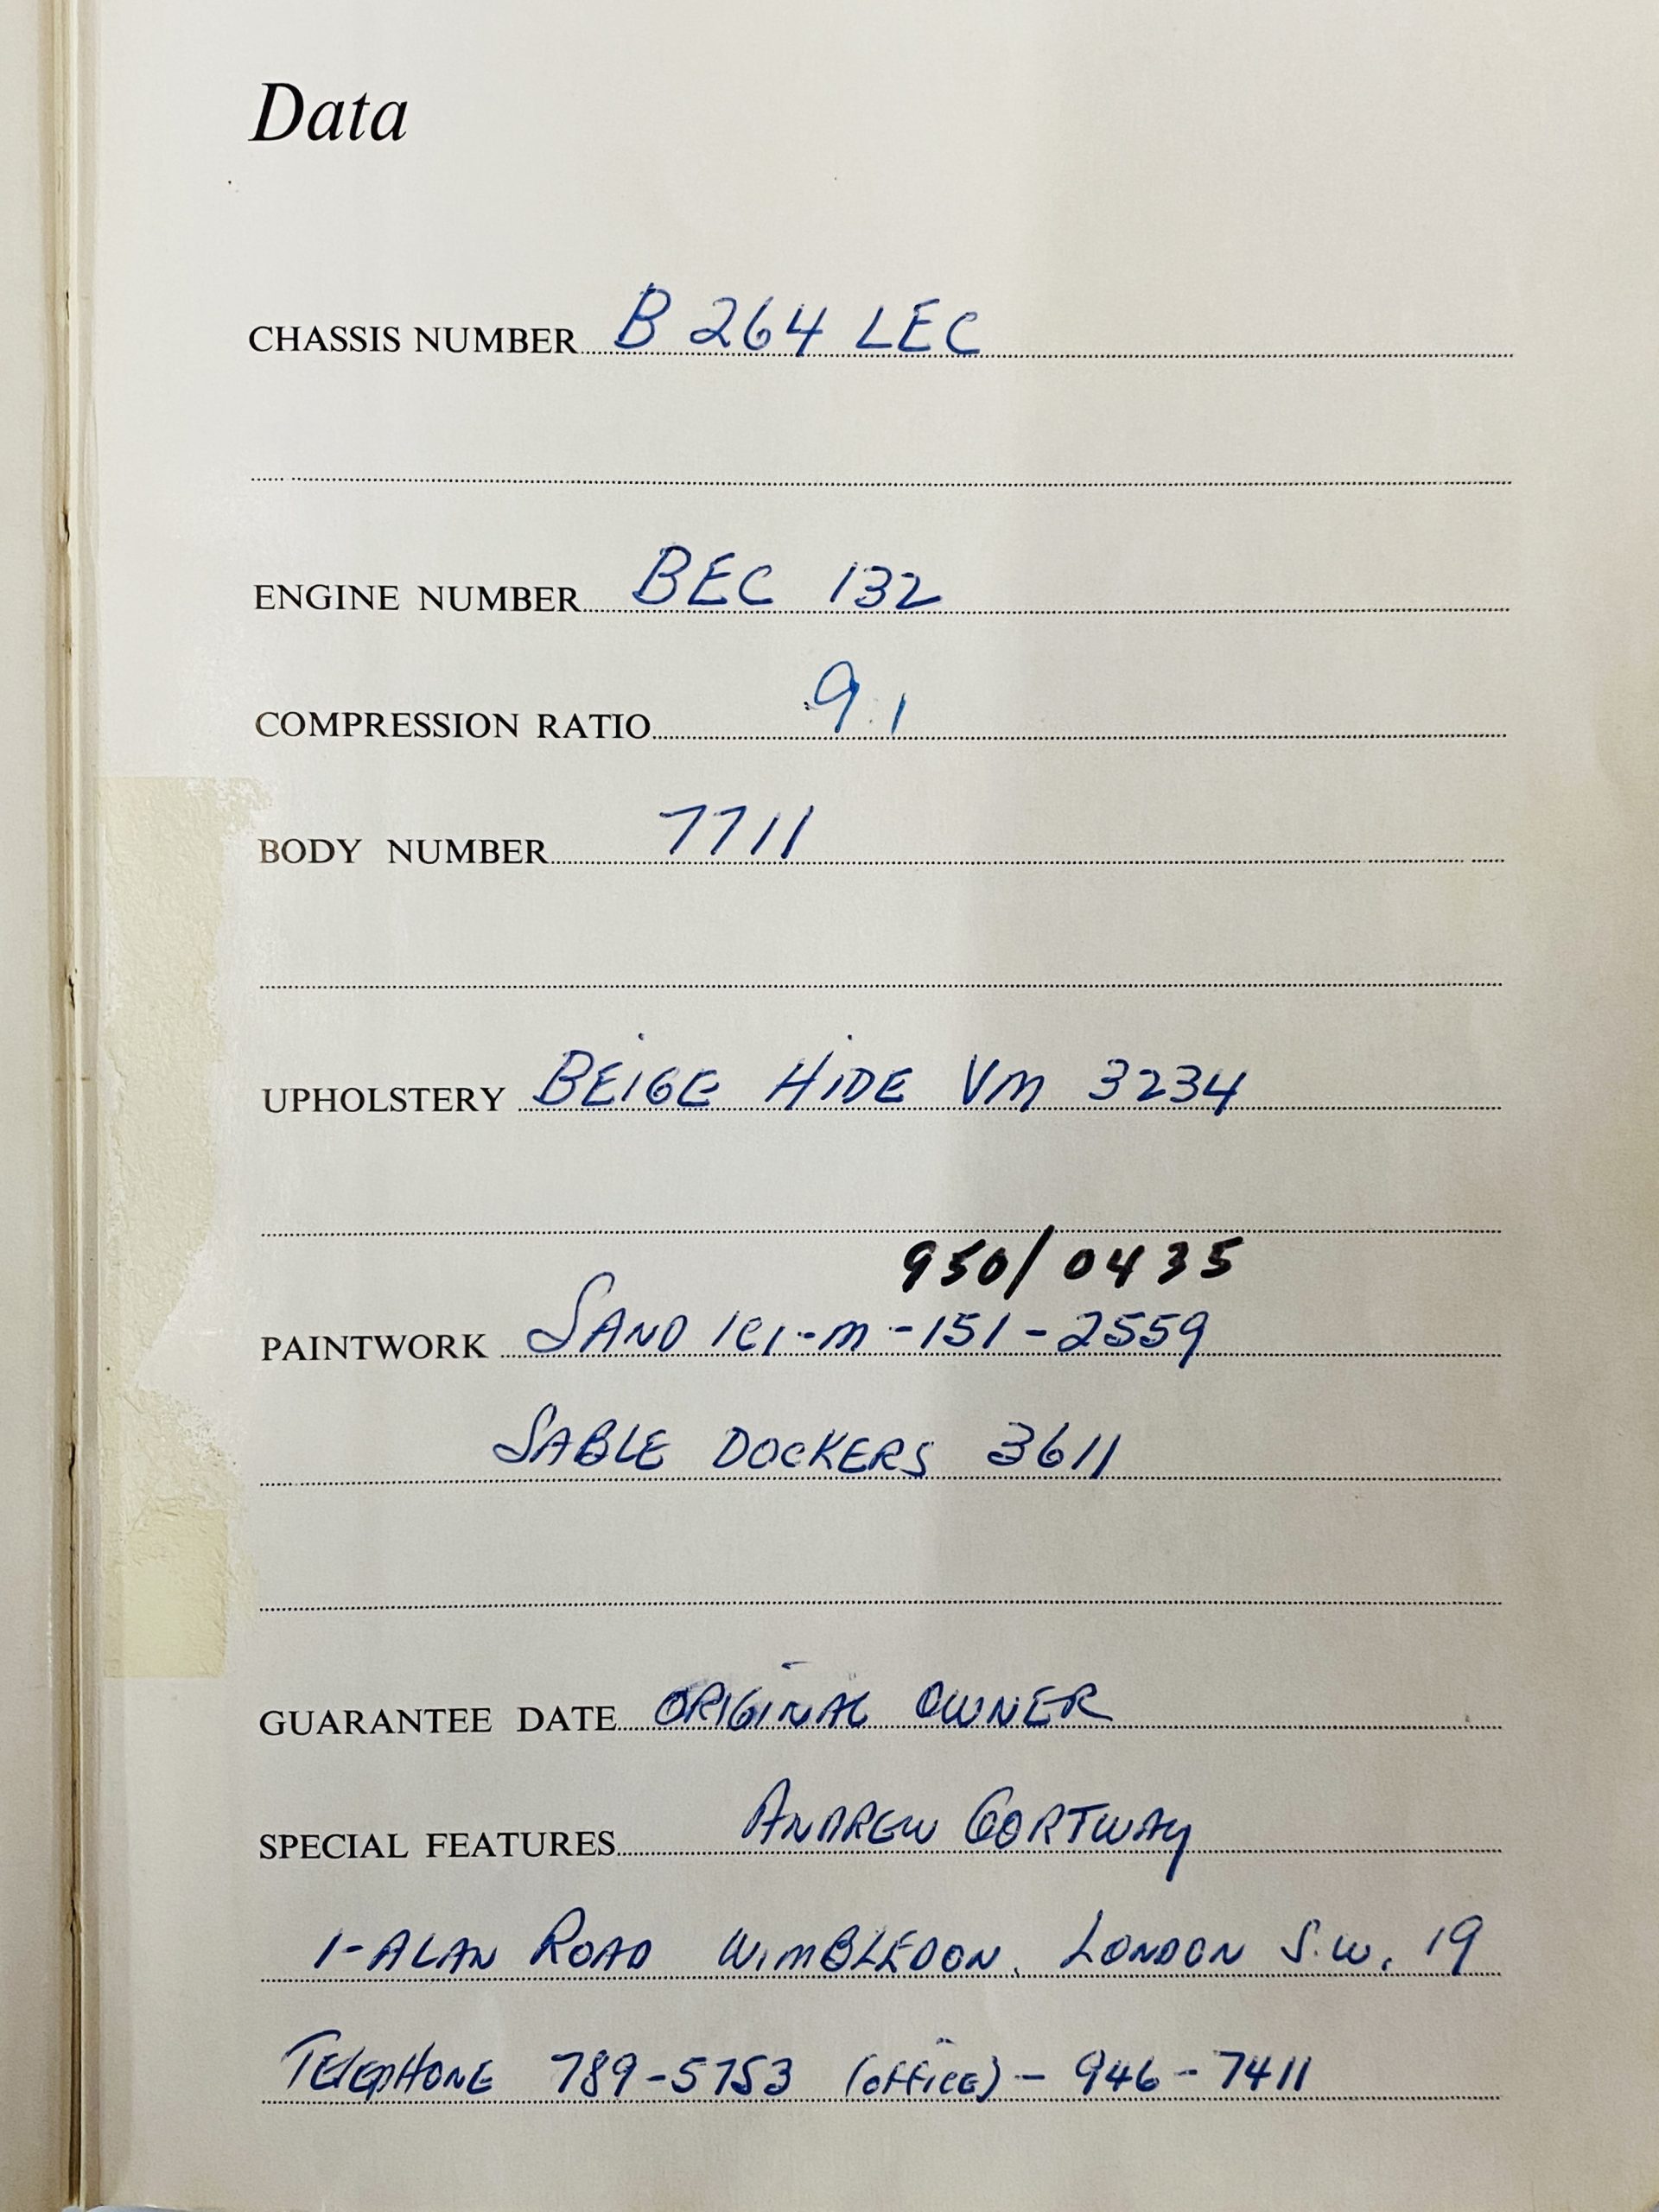 Data
CHASSIS NUMBER B 264 LEC
ENGINE NUMBER BEC 132
COMPRESSION RATIO 9.1
BODY NUMBER 7711
UPHOLSTERY BEIGE HIDE VM 3234
950/0435
PAINTWORK SAND ICI-M-151-2559
SABLE DOCKERS 3611
GUARANTEE DATE ORIGINAL OWNER
SPECIAL FEATURES ANDREW GORTWAY
1-ALAN ROAD WIMBLEDON. LONDON S.W. 19
TELEPHONE 789-5753 (office) - 946-7411